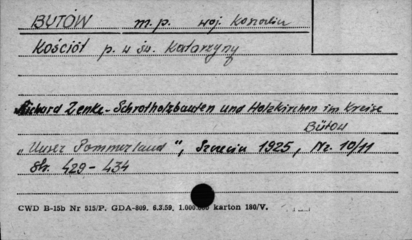 BYTÓW m.p. woj. Koszalin
Kościół p. w św. Katarzyny
Richard Zenke - Schrotholzbauten und Holzkirchen im Kreise
Bütow
„Unser Pommerland", Szczecin 1925, Nr. 10/11
Str. 429-434
CWD B-15b Nr 515/P. GDA-809. 6.3.59. 1.000.000 karton 180/V.